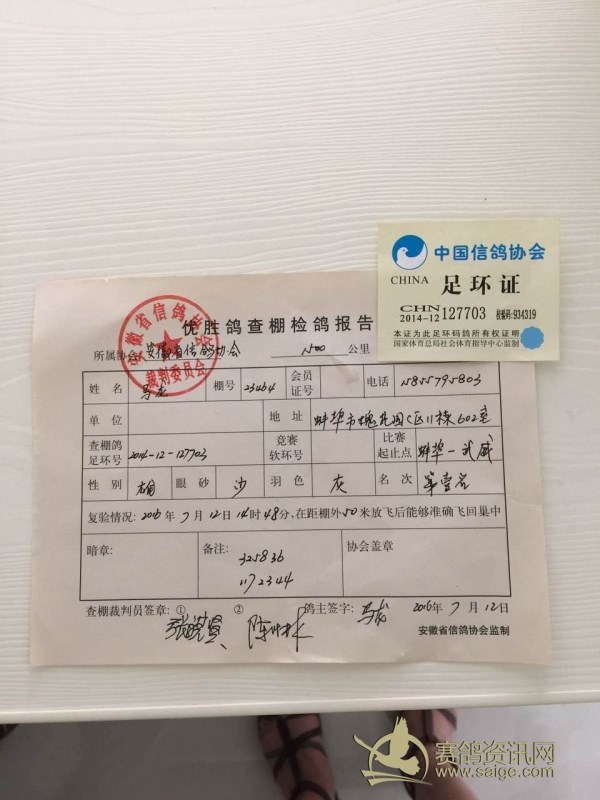 中国信鸽协会
CHINA 足环证
CHN
2014-12 127703 校编码:934319
本证为此足环码鸽所有权证明
国家体育总局社会体育指导中心监制
安徽省信鸽协会
裁判委员会
优胜鸽查棚检鸽报告
所属协会 安徽省信鸽协会 1500 公里
姓名 马龙 棚号 23464 会员证号 电话 15855795803
单位 地址 蚌埠市槐花园C区11栋602室
查棚鸽足环号 2014-12-127703 竞赛软环号 比赛起止点 蚌埠—武威
性别 雄 眼砂 沙 羽色 灰 名次 第壹名
复验情况: 2016年7月12日14时48分,在距棚外50米放飞后能够准确飞回巢中
暗章: 备注: 协会盖章
325836
1172344
查棚裁判员签章:① ② 鸽主签字: 马龙 2016年7月12日
安徽省信鸽协会监制
赛鸽资讯网
www.saige.com